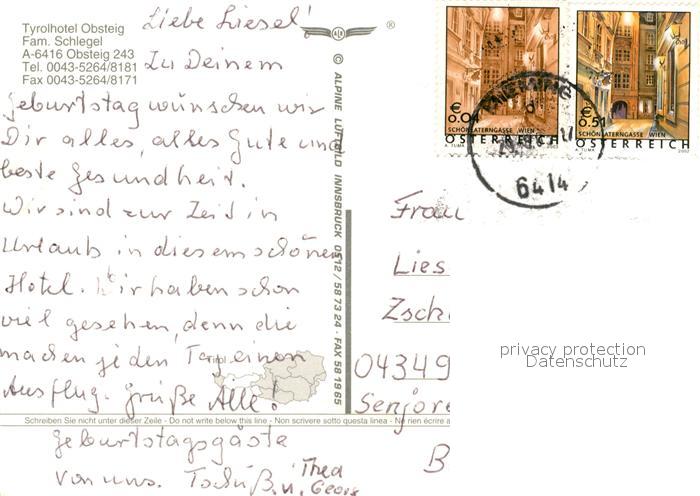 Tyrolhotel Obsteig
Fam. Schlegel
A-6416 Obsteig 243
Tel. 0043-5264/8181
Fax 0043-5264/8171
Liebe Liesel!
Zu Deinem
Geburtstag wünschen wir
Dir alles, alles Gute und
beste Gesundheit.
Wir sind zur Zeit in
Urlaub in diesem schönen
Hotel. Wir haben schon
viel gesehen, denn die
machen jeden Tag einen
Ausflug. Grüße Alle!
Schreiben Sie nicht unter dieser Zeile - Do not write below this line - Non scrivere sotto questa linea - Ne rien écrire a
Geburtstagsgäste
von uns. Tschüß. Thea
u. Georg
Tirol
®
© ALPINE LUFTBILD INNSBRUCK 0512 / 58 73 24 · FAX 58 19 85
€ 0,04
SCHÖNLATERNGASSE WIEN
ÖSTERREICH
A. TUMA 2003
€ 0,51
SCHÖNLATERNGASSE WIEN
ÖSTERREICH
A. TUMA 2002
6414
Frau
Lies
Zsch
04349
Senjore
B
privacy protection
Datenschutz